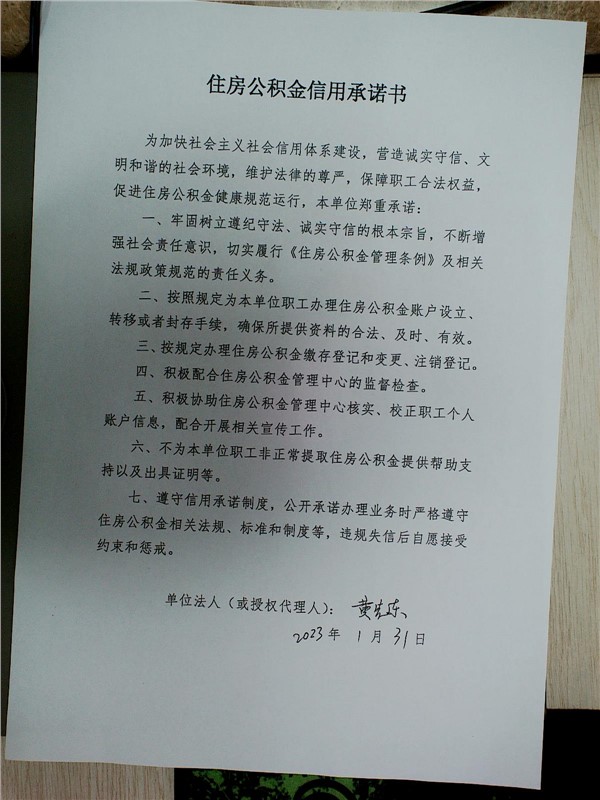 住房公积金信用承诺书
为加快社会主义社会信用体系建设，营造诚实守信、文
明和谐的社会环境，维护法律的尊严，保障职工合法权益，
促进住房公积金健康规范运行，本单位郑重承诺：
一、牢固树立遵纪守法、诚实守信的根本宗旨，不断增
强社会责任意识，切实履行《住房公积金管理条例》及相关
法规政策规范的责任义务。
二、按照规定为本单位职工办理住房公积金账户设立、
转移或者封存手续，确保所提供资料的合法、及时、有效。
三、按规定办理住房公积金缴存登记和变更、注销登记。
四、积极配合住房公积金管理中心的监督检查。
五、积极协助住房公积金管理中心核实、校正职工个人
账户信息，配合开展相关宣传工作。
六、不为本单位职工非正常提取住房公积金提供帮助支
持以及出具证明等。
七、遵守信用承诺制度，公开承诺办理业务时严格遵守
住房公积金相关法规、标准和制度等，违规失信后自愿接受
约束和惩戒。
单位法人（或授权代理人）：黄
2023年 1月 31日